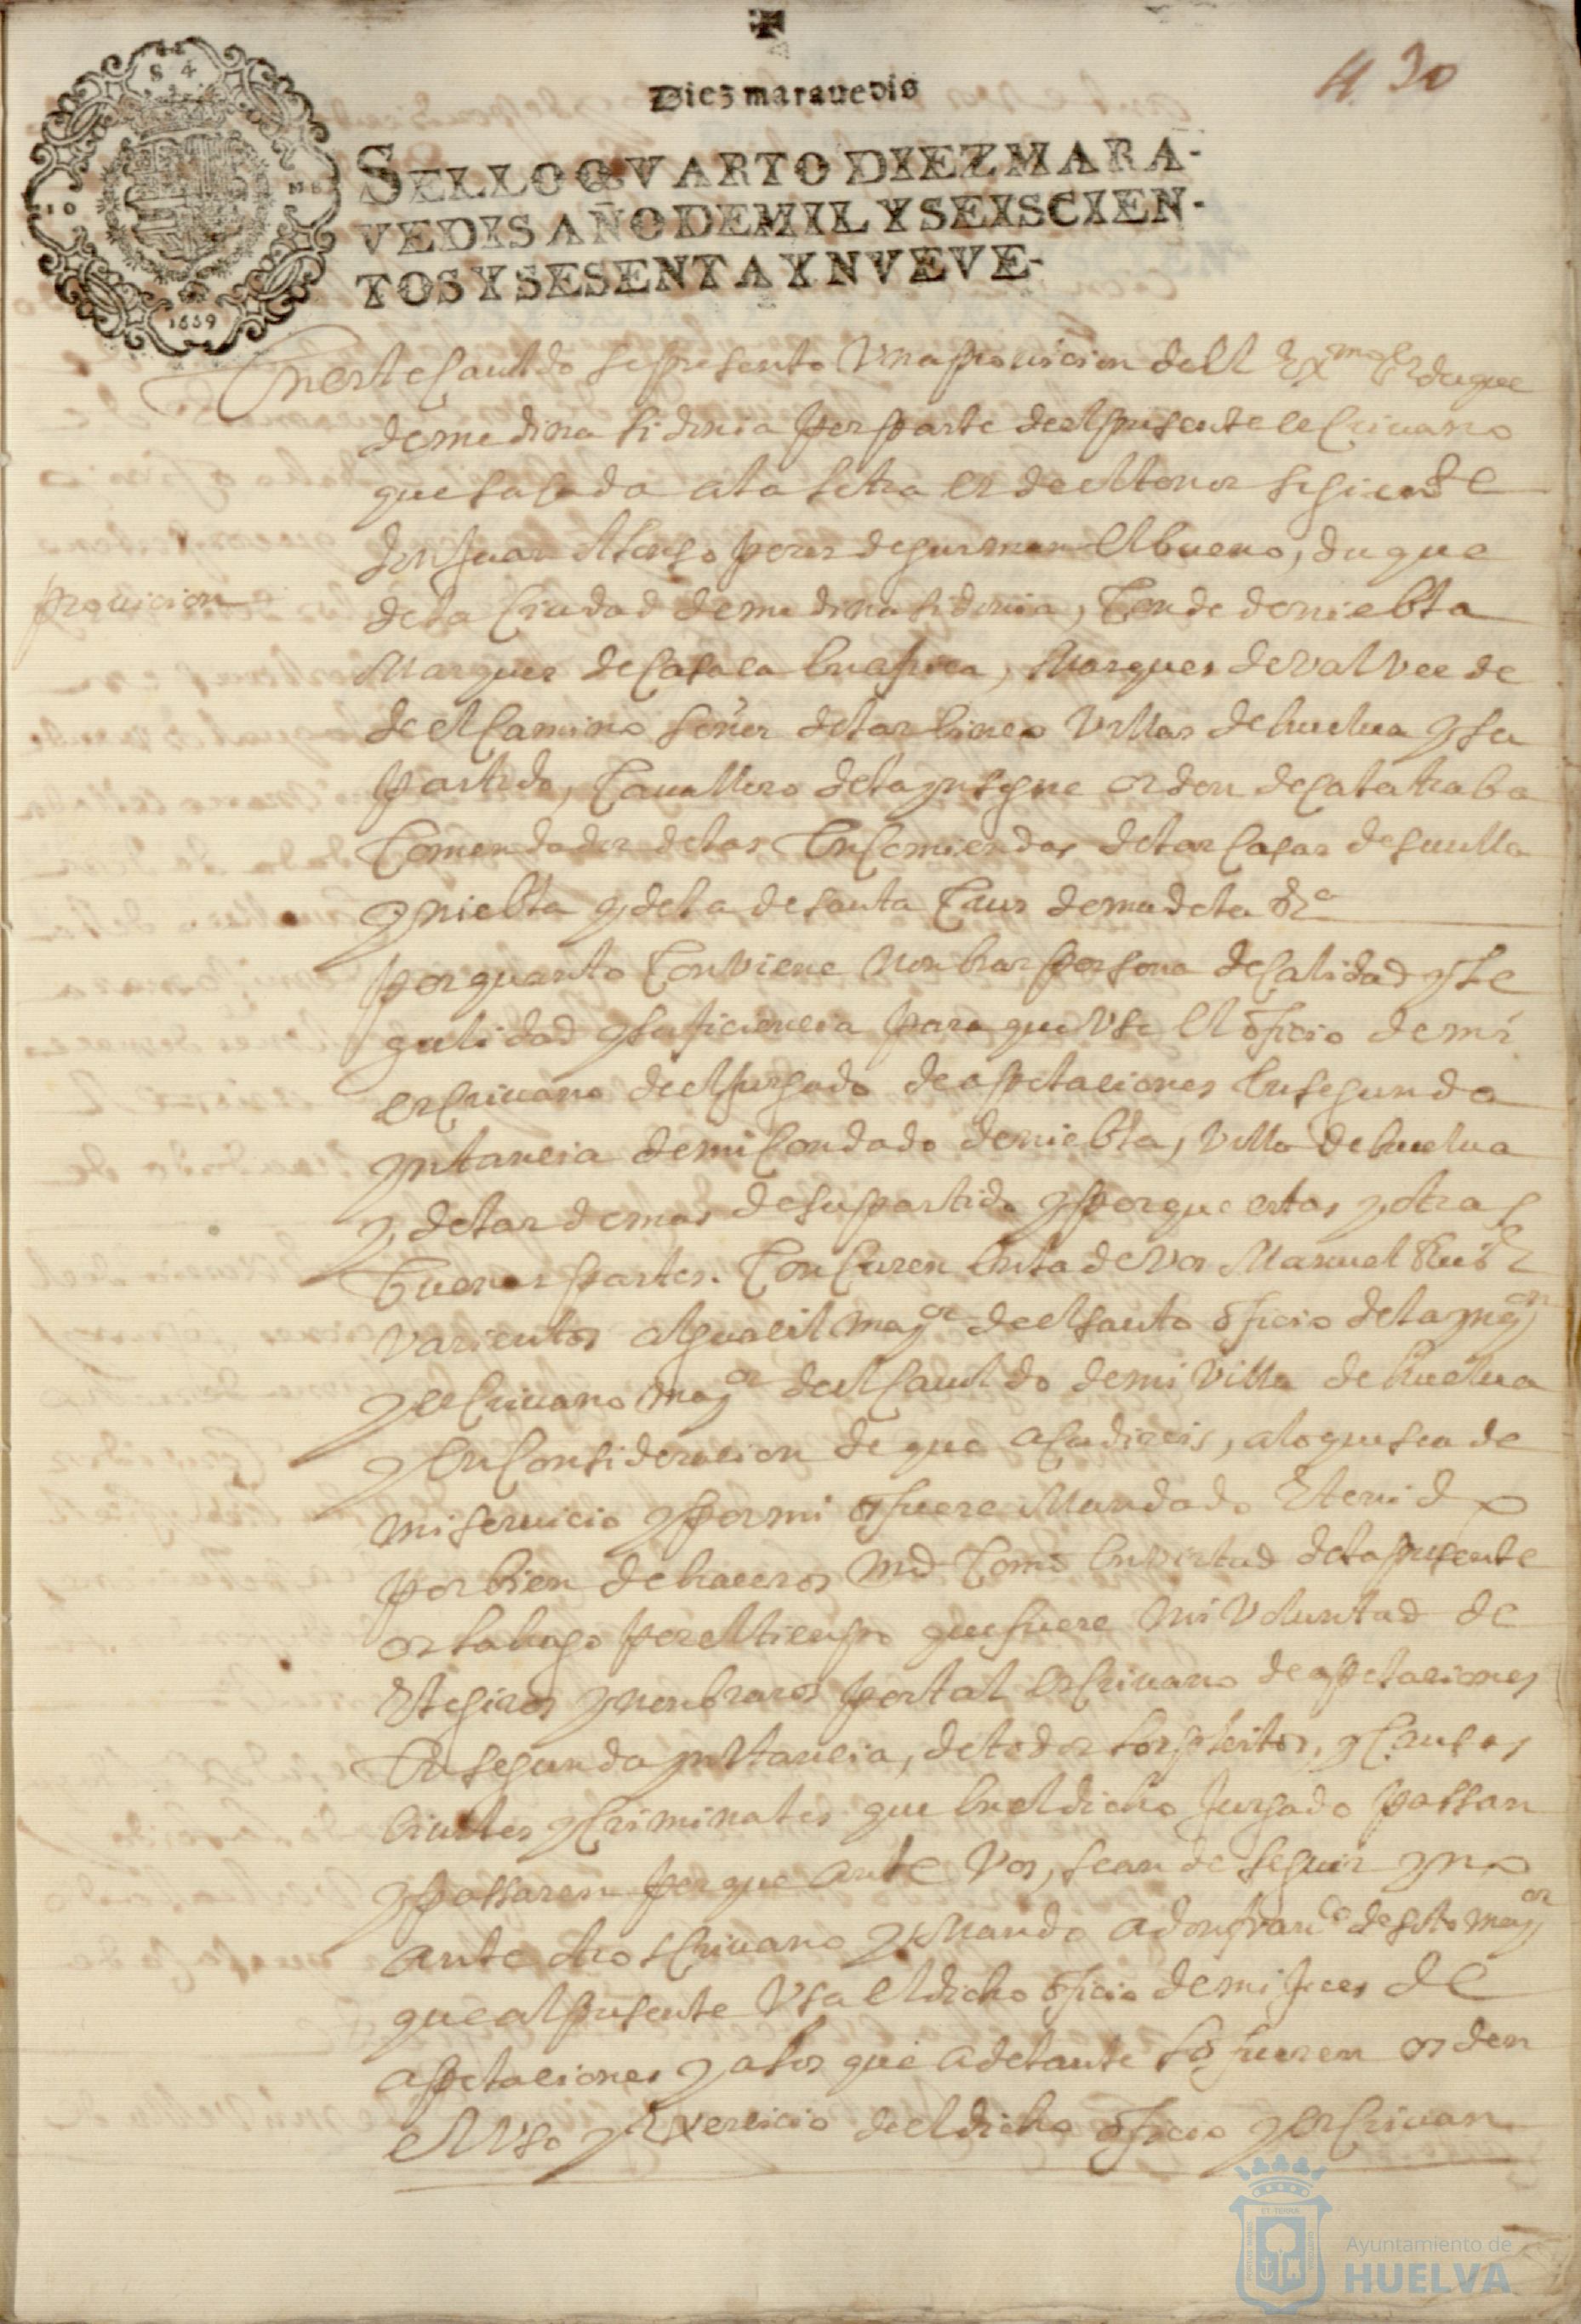 Diez marauedis
4 30
SELLO QVARTO DIEZ MARA-
VEDIS AÑO DE MIL Y SEISCIEN-
TOS Y SESENTA Y NVEVE-
1669
En este Cauildo se presento Vna prouicion dell Exmo Sr duque
de medina sidonia por parte de el presente escriuano
que sacada a la letra es de el tenor siguiente
prouicion
don Juan Alonso peres de gusman el bueno, duque
de la Ciudad de medina sidonia, Conde de niebla
Marques de Casasa en africa, Marques de valverde
de el Camino señor de las cinco Villas de huelua y su
partido, Cauallero de la ynsigne orden de Calatraba
Comendador de las Encomiendas de las Casas de seuilla
y niebla y de la de santa Crus de mudela &a
por quanto Conviene nonbrar persona de Calidad y le
galidad y suficiencia para que Vse el oficio de mi
escriuano de el Jusgado de apelaciones en segunda
ynstancia de mi Condado de niebla, Villa de huelua
y de las demas de su partido y porque estas y otras
buenas partes. Concuren en la de Vos Manuel Ruis
varientos alguacil mayor de el santo oficio de la ynqon
y escriuano mayor de el Cauildo de mi Villa de huelua
y en Consideracion de que acudireis, a lo que sea de
mi seruicio y por mi os fuere Mandado E tenido
por bien de haceros md Como en virtud de la presente
os la hago por el tiempo que fuere mi Voluntad de
Elegiros y nonbraros por tal escriuano de apelaciones
En segunda ynstancia, de todos los pleitos, y Causas
ciuiles y Criminales que en el dicho Jusgado passan
y passaren porque ante Vos, sean de seguir y no
ante otro escriuano y Mando a don franco de soto mayor
que al presente Vsa el dicho oficio de mi Jues de
apelaciones y a los que adelante lo fueren os den
el Vso y Exercicio de el dicho oficio y escriuan
Ayuntamiento de
HUELVA